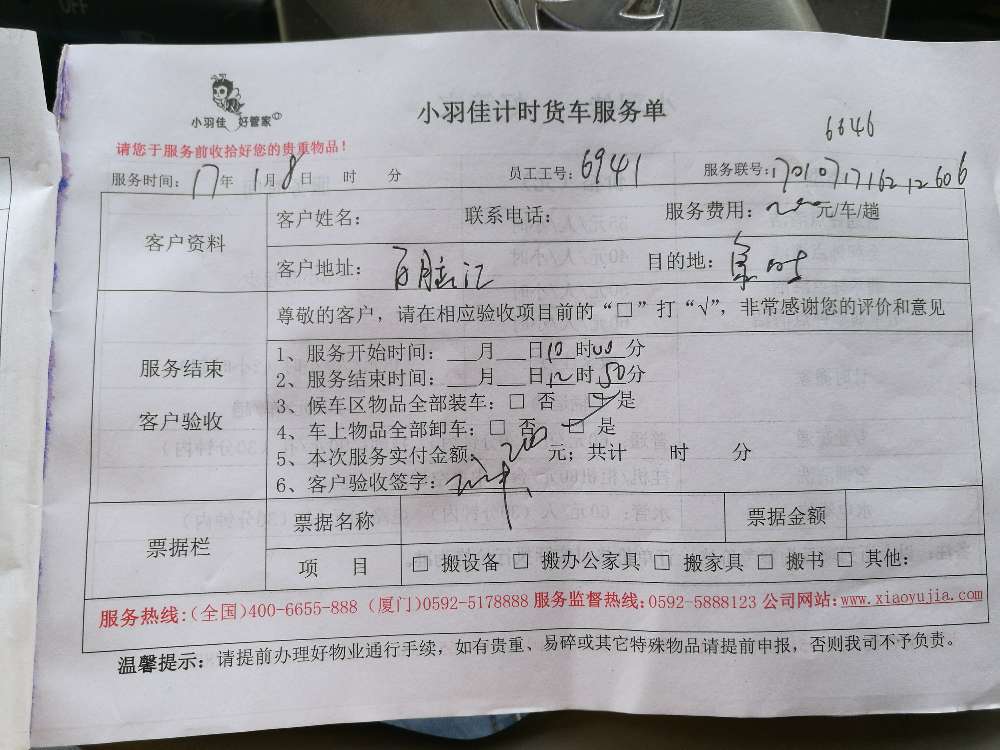 小羽佳 好管家
小羽佳计时货车服务单
6646
请您于服务前收拾好您的贵重物品！
服务时间：17年1月8日 时 分 员工工号：6941 服务联号：1701071716212606
客户资料
客户姓名： 联系电话： 服务费用：200元/车/趟
客户地址： 目的地：
服务结束
客户验收
尊敬的客户，请在相应验收项目前的“□”打“√”，非常感谢您的评价和意见
1、服务开始时间：___月___日10时00分
2、服务结束时间：___月___日12时50分
3、候车区物品全部装车：□ 否 □ 是
4、车上物品全部卸车：□ 否 □ 是
5、本次服务实付金额：200元；共计 时 分
6、客户验收签字：
票据栏
票据名称 票据金额
项 目 □ 搬设备 □ 搬办公家具 □ 搬家具 □ 搬书 □ 其他：
服务热线:(全国)400-6655-888 (厦门)0592-5178888 服务监督热线:0592-5888123 公司网站:www.xiaoyujia.com
温馨提示：请提前办理好物业通行手续，如有贵重、易碎或其它特殊物品请提前申报，否则我司不予负责。